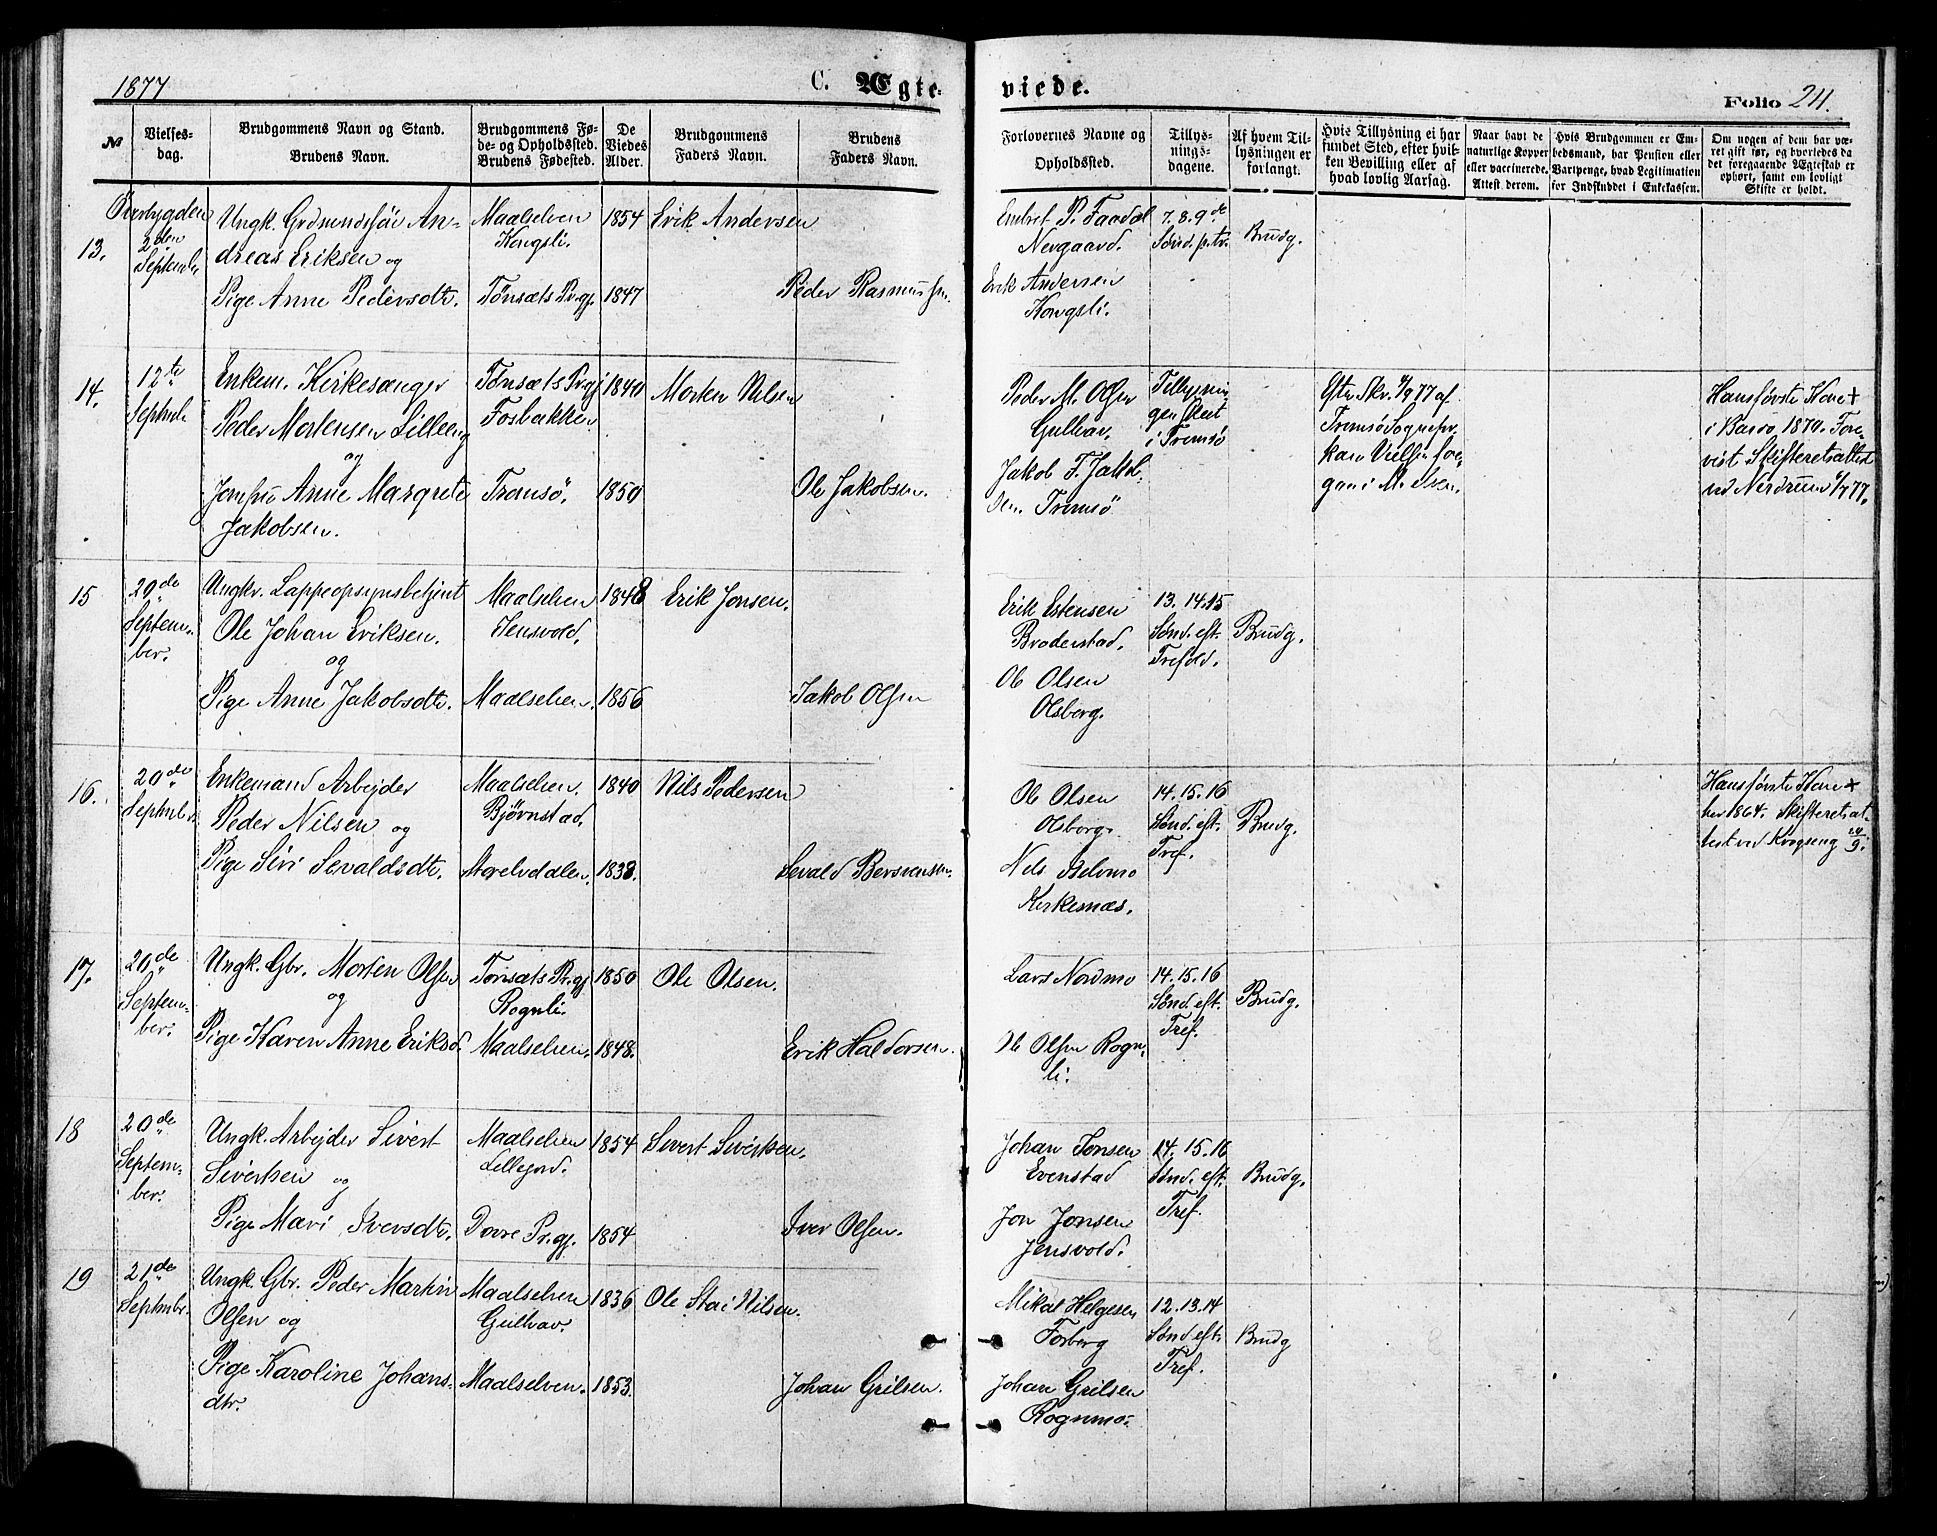 1877
C. Ægte-
viede.
Folio 211.
№
Vielses-
dag.
Brudgommens Navn og Stand.
Brudens Navn.
Brudgommens Fø-
de- og Opholdssted.
Brudens Fødested.
De
Viedes
Alder.
Brudgommens
Faders Navn.
Brudens
Faders Navn.
Forlovernes Navne og
Opholdssted.
Tillys-
nings-
dagene.
Af hvem Til-
lysningen er
forlangt.
Hvis Tillysning ei har
fundet Sted, efter hvil-
ken Bevilling eller af
hvad lovlig Aarsag.
Naar havt de
naturlige Kopper
eller vaccinerede.
Attest derom.
Hvis Brudgommen er Em-
bedsmand, har Pension eller
Vartpenge, hvad Legitimation
for Indskuddet i Enkekassen.
Om nogen af dem har væ-
ret gift før, og hvorledes da
det foregaaende Ægteskab er
ophørt, samt om lovligt
Skifte er holdt.
Øverbygden
13.
2den
Septemb.
Ungk. An-
dreas Eriksen og
Pige Anne Pedersdtr.
Maalselven
Kongsli.
Tønsæts Pr.gj.
1854
1847
Erik Andersen
Peder Rasmussen.
Embret P. Faadal
Nergaard.
Erik Andersen
Kongsli.
7. 8. 9de
Sønd. p. tr.
Brudg.
14.
12te
Septmb.
Enkem. Kirkesanger
Peder Mortensen Lilleeng
og
Jomfru Anne Margrete
Jakobsen.
Tønsæts Pr.gj
Fosbakken
Tromsø.
1840
1850
Morten Nilsen
Ole Jakobsen.
Peder M. Olsen
Gullhav.
Jakob F. Jakob-
sen. Tromsø
Tillysnin
gen skeet
i Tromsø
Efter Skr. 4/9 77 af
Tromsø Sognepr.
kan Vielsen fore-
gaa i M.elven.
Hans første Kone +
i Bardo 1870. Fore-
vist Skifteretsattest
ved Nerdrum 6/7 77.
15
20de
Septem-
ber.
Ungkr. Lappeopsynsbetjent
Ole Johan Eriksen.
og
Pige Anne Jakobsdtr.
Maalselven
Jensvold.
Maalselven.
1848
1856
Erik Jonsen.
Jakob Olsen
Erik Estensen
Brodenstad.
Ole Olsen
Olsborg.
13. 14. 15
Sønd. eft.
Trefold.
Brudg.
16.
20de
Septmber.
Enkemand Arbejder
Peder Nilsen og
Pige Siri Sevaldsdtr.
Maalselven.
Bjørnstad.
1840
1838.
Nils Pedersen
Sevald Bersvensen.
Ole Olsen
Olsborg.
Nils Helvmo
Kirkesnæs.
14. 15. 16
Sønd. eft.
Tref.
Brudg.
Hans første Kone +
her 1864. Skifteretsat-
test ved Krogseng
17.
20de
Septem-
ber.
Ungk. Gbr. Morten Olsen
og
Pige Karen Anne Eriksd.
Tønsæts Pr.gj
Rognli.
Maalselven.
1850
1848.
Ole Olsen.
Erik Haldorsen.
Lars Nordmo
Ole Olsen Rogn-
li.
14. 15. 16
Sønd. eft.
Tref.
Brudg.
18
20de
Septem-
ber.
Ungk. Arbejder Sivert
Sivertsen og
Pige Mari Iversdtr.
Maalselven
Lillejord.
Dovre Pr.gj.
1854
1854
Sivert Sivertsen.
Iver Olsen.
Johan Jonsen
Evenstad
Jon Jonsen
Jensvold.
14. 15. 16
Sønd. eft.
Tref.
Brudg.
19
21de
Septmbr.
Ungk. Gbr. Peder Martin
Olsen og
Pige Karoline Johans-
dtr.
Maalselven
Gullhav.
Maalselven.
1836
1853.
Ole Stai Nilsen.
Johan Grilsen.
Mikal Helgesen
Fosberg
Johan Grilsen
Rognmo.
12. 13. 14
Sønd. eft.
Tref.
Brudg